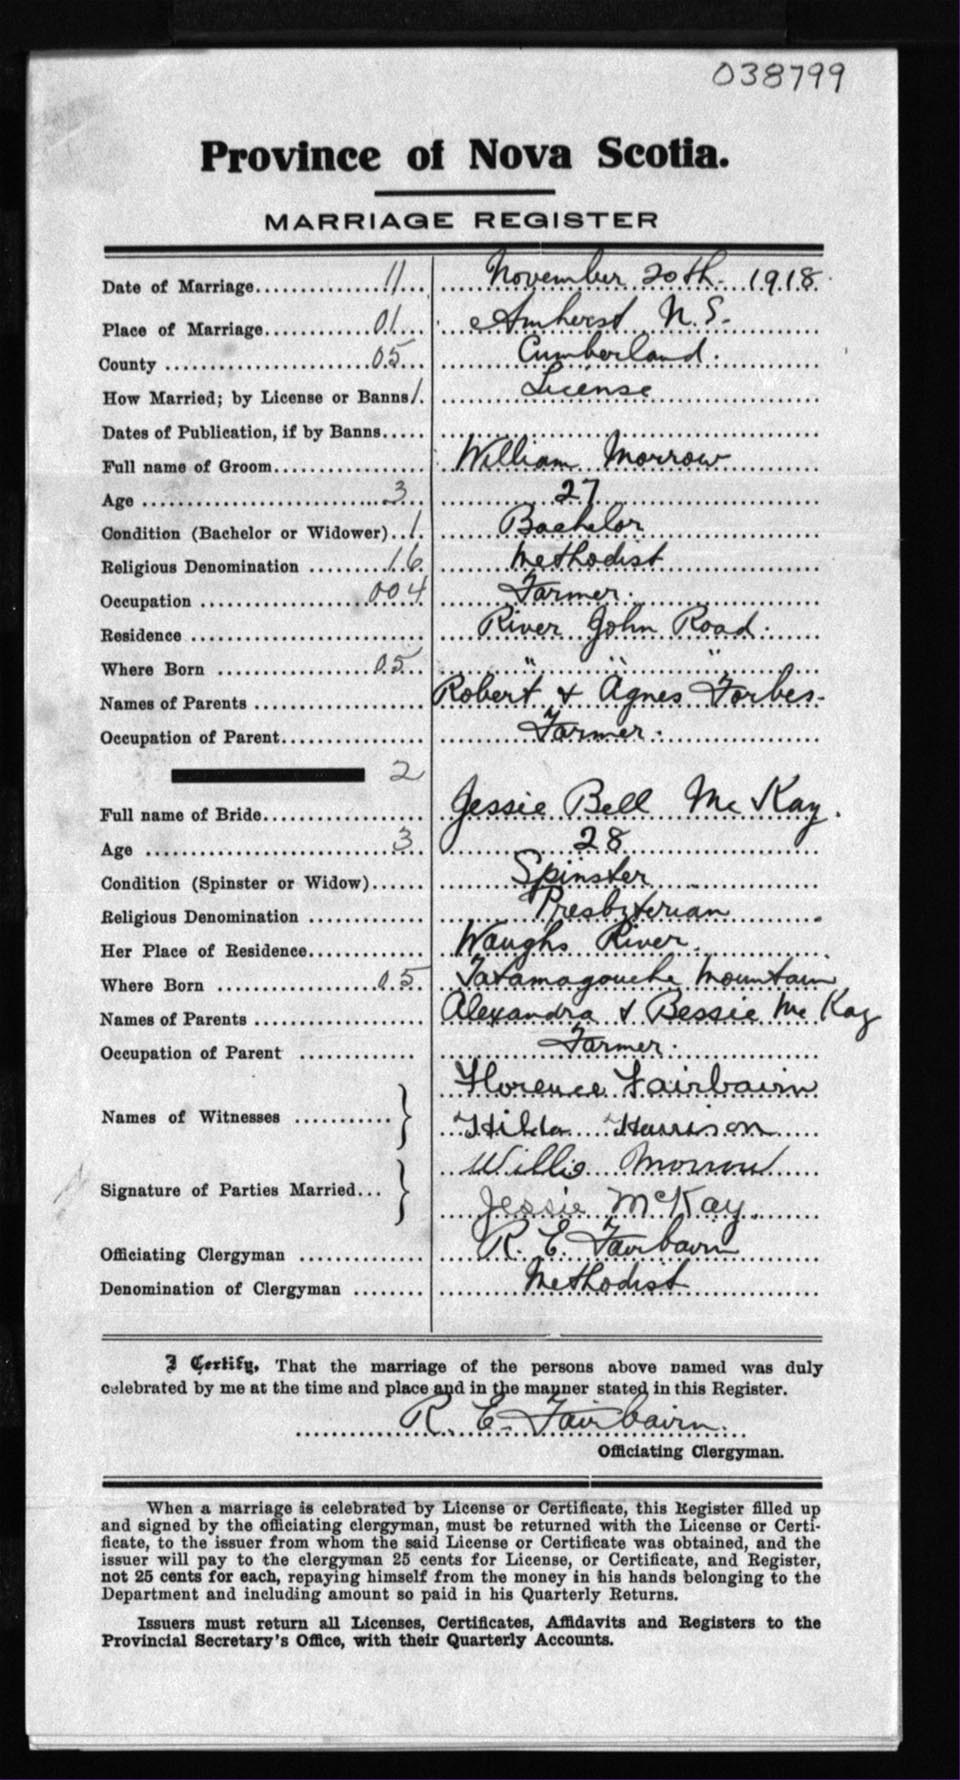 038799
Province of Nova Scotia.
MARRIAGE REGISTER
Date of Marriage..............11... November 20th. 1918.
Place of Marriage...........01... Amherst N.S.
County ........................05... Cumberland.
How Married; by License or Banns 1. License
Dates of Publication, if by Banns.....
Full name of Groom................. William Morrow
Age ............................3.. 27
Condition (Bachelor or Widower)..1. Bachelor
Religious Denomination ........16. Methodist
Occupation ....................004 Farmer.
Residence ........................... River John Road.
Where Born ..................05... " " "
Names of Parents .................... Robert & Agnes Forbes.
Occupation of Parent................. Farmer.
2
Full name of Bride.................. Jessie Bell McKay.
Age ............................3.. 28
Condition (Spinster or Widow)...... Spinster
Religious Denomination ............. Presbyterian
Her Place of Residence............. Waughs River.
Where Born ..................05. Tatamagouche Mountain
Names of Parents .................... Alexandra & Bessie McKay
Occupation of Parent ............. Farmer.
Florence Fairbairn
Names of Witnesses ............
Hilda Harrison
Willis Morrow
Signature of Parties Married...
Jessie McKay.
Officiating Clergyman ............. R. E. Fairbairn
Denomination of Clergyman ........ Methodist
I Certify, That the marriage of the persons above named was duly
celebrated by me at the time and place and in the manner stated in this Register.
R. E. Fairbairn.
Officiating Clergyman.
When a marriage is celebrated by License or Certificate, this Register filled up
and signed by the officiating clergyman, must be returned with the License or Certi-
ficate, to the issuer from whom the said License or Certificate was obtained, and the
issuer will pay to the clergyman 25 cents for License, or Certificate, and Register,
not 25 cents for each, repaying himself from the money in his hands belonging to the
Department and including amount so paid in his Quarterly Returns.
Issuers must return all Licenses, Certificates, Affidavits and Registers to the
Provincial Secretary's Office, with their Quarterly Accounts.